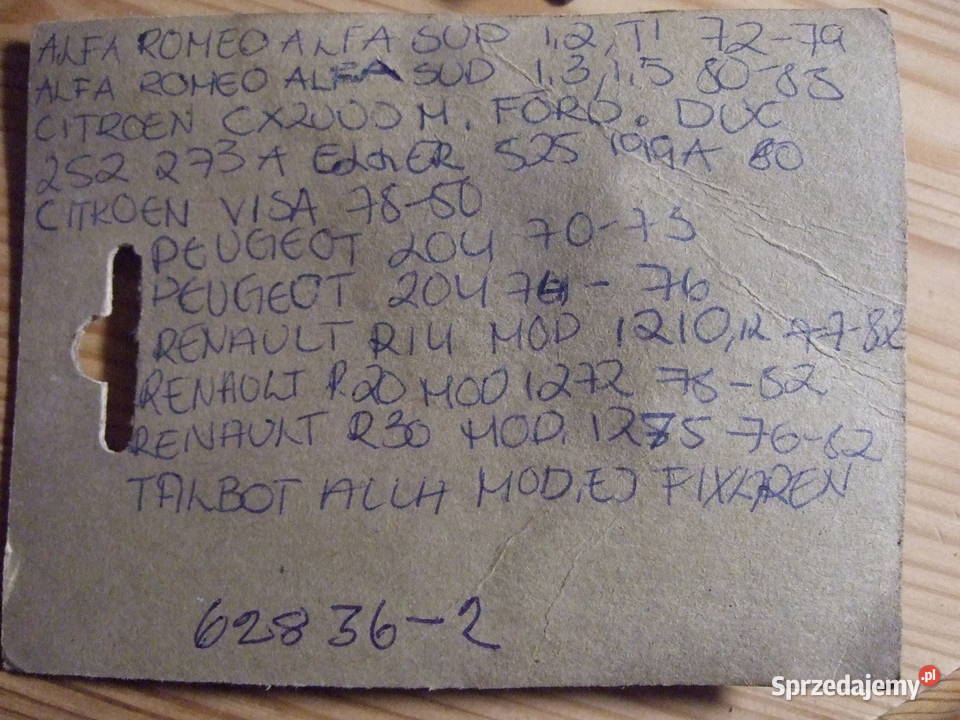 ALFA ROMEO ALFA SUD 1,2, TI 72-79
ALFA ROMEO ALFA SUD 1.3, 1.5 80-83
CITROEN CX2000 M. FÖRD. DUC
252 273 A ELLER 525 199A 80
CITROEN VISA 78-80
PEUGEOT 204 70-73
PEUGEOT 204 74-76
RENAULT R14 MOD 1210, 12 77-82
RENAULT R20 MOD 1272 78-82
RENAULT R30 MOD. 1275 76-82
TALBOT ALLA MOD, EJ
62836-2
Sprzedajemy.pl